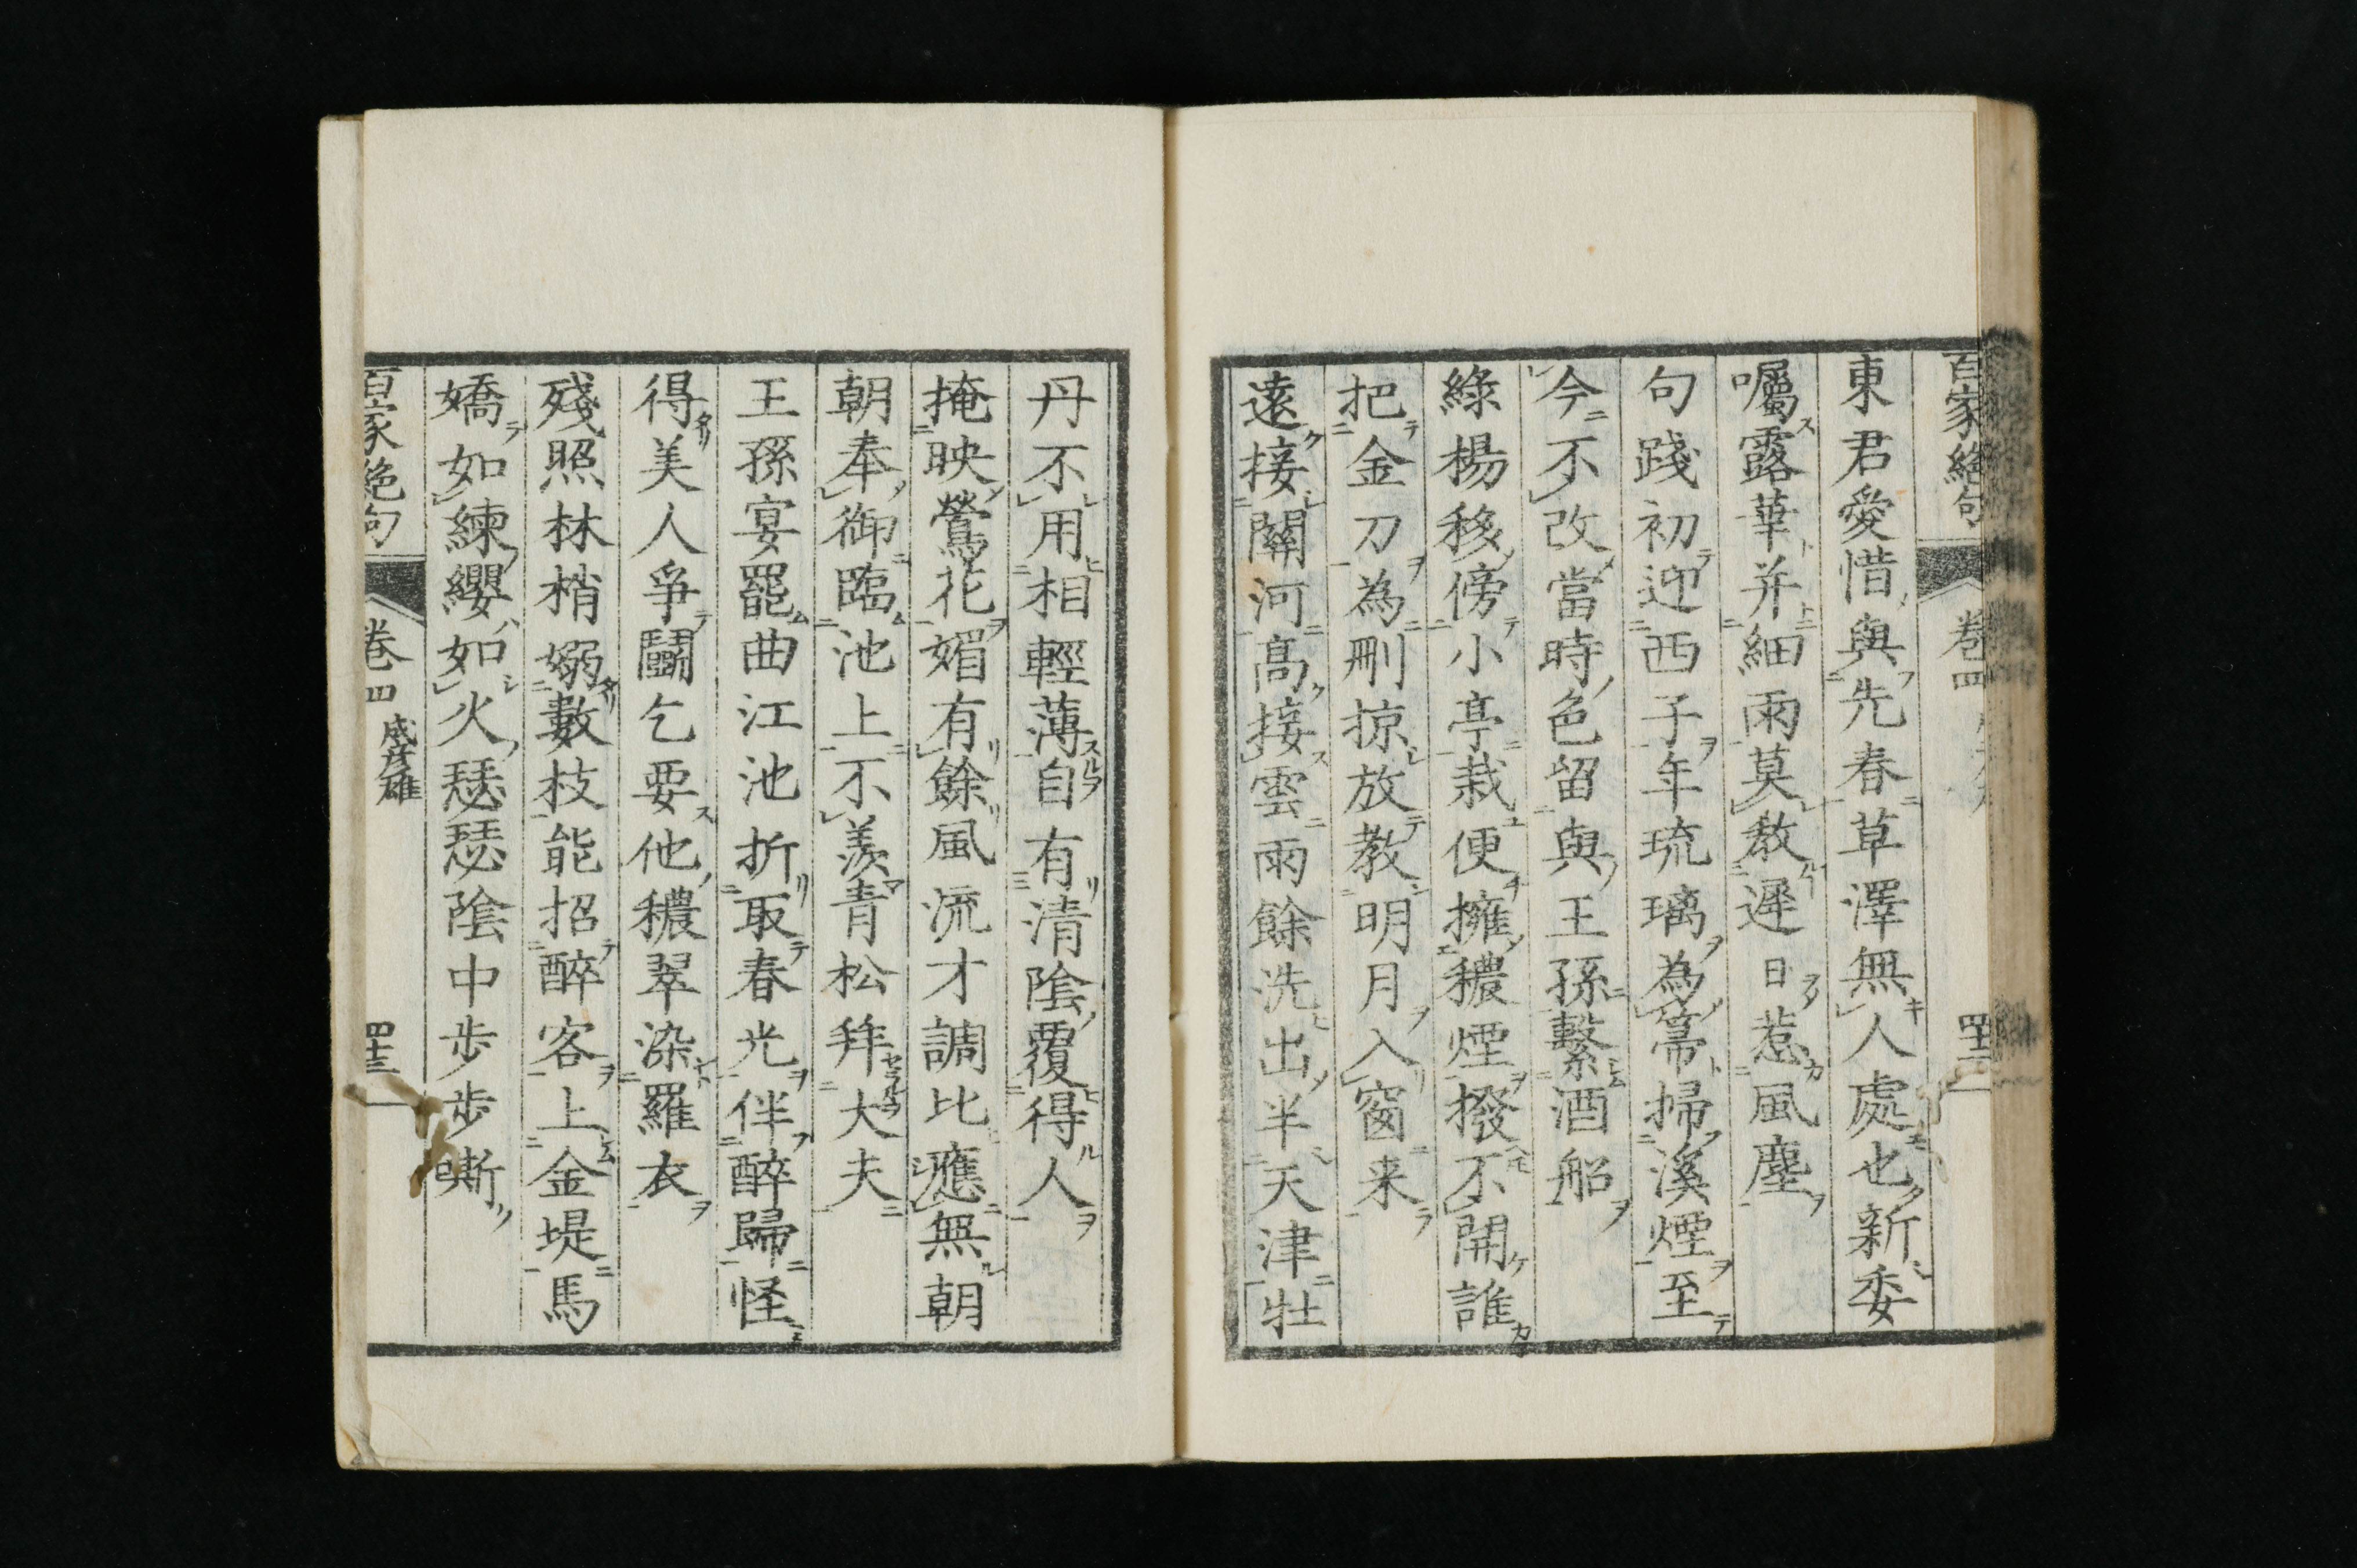 百家絶句 卷四 四十二
東君愛惜與先春草澤無人處也新委
囑露華并細雨莫教遲日惹風塵
句踐初迎西子年琉璃為箒掃溪煙至
今不改當時色留與王孫繫酒船
綠楊移傍小亭栽便擁穠煙撥不開誰
把金刀為刪掠放教明月入窗来
遠接關河高接雲雨餘洗出半天津牡
丹不用相輕薄自有清陰覆得人
掩映鶯花媚有餘風流才調比應無朝
朝奉御臨池上不羨青松拜大夫
王孫宴罷曲江池折取春光伴醉歸怪
得美人爭鬭乞要他穠翠染羅衣
殘照林梢嫋數枝能招醉客上金堤馬
嬌如練纓如火瑟瑟陰中步步嘶
百家絶句 卷四 成彦雄 四十三